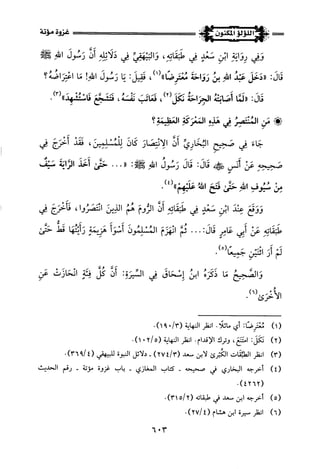 اللؤلؤ المكنون
غزوة مؤتة
وَفِي رِوَايَةِ ابْنِ سَعْدٍ فِي طَبَقَاتِهِ، وَالبَيْهَقِيِّ فِي دَلَائِلِهِ أَنَّ رَسُولَ اللهِ ﷺ
قَالَ: «دَخَلَ عَبْدُ اللهِ بنُ رَوَاحَةَ مُعْتَرِضًا»(١)، فَقِيلَ: يَا رَسُولَ اللهِ! مَا اعْتِرَاضُهُ؟
قَالَ: «لَمَّا أَصَابَتْهُ الجِرَاحَةُ نَكَلَ(٢)، فَعَاتَبَ نَفْسَهُ، فَتَشَجَّعَ فَاسْتُشْهِدَ»(٣).
◉ مَنِ المُنْتَصِرُ فِي هَذِهِ المَعْرَكَةِ العَظِيمَةِ؟
جَاءَ فِي صَحِيحِ البُخَارِيِّ أَنَّ الِانْتِصَارَ كَانَ لِلْمُسْلِمِينَ، فَقَدْ أَخْرَجَ فِي
صَحِيحِهِ عَنْ أَنَسٍ ﵁ قَالَ: قَالَ رَسُولُ اللهِ ﷺ: «... حَتَّى أَخَذَ الرَّايَةَ سَيْفٌ
مِنْ سُيُوفِ اللهِ حَتَّى فَتَحَ اللهُ عَلَيْهِمْ»(٤).
وَوَقَعَ عِنْدَ ابْنِ سَعْدٍ فِي طَبَقَاتِهِ أَنَّ الرُّومَ هُمُ الذِينَ انْتَصَرُوا، فَأَخْرَجَ فِي
طَبَقَاتِهِ عَنْ أَبِي عَامِرٍ قَالَ: ... ثُمَّ انْهَزَمَ المُسْلِمُونَ أَسْوَأَ هَزِيمَةٍ رَأَيْتُهَا قَطُّ حَتَّى
لَمْ أَرَ اثْنَيْنِ جَمِيعًا(٥).
وَالصَّحِيحُ مَا ذَكَرَهُ ابنُ إِسْحَاقَ فِي السِّيرَةِ: أَنَّ كُلَّ فِئَةٍ انْحَازَتْ عَنِ
الأُخْرَى(٦).
(١) مُعْتَرِضًا: أي مائلًا. انظر النهاية (١٩٠/٣).
(٢) نَكَلَ: امتَنَعَ، وترك الإقدام. انظر النهاية (١٠٢/٥).
(٣) انظر الطبقات الكبرى لابن سعد (٢٧٤/٣) ـ دلائل النبوة للبيهقي (٣٦٩/٤).
(٤) أخرجه البخاري في صحيحه ـ كتاب المغازي ـ باب غزوة مؤتة ـ رقم الحديث
(٤٢٦٢).
(٥) أخرجه ابن سعد في طبقاته (٣١٥/٢).
(٦) انظر سيرة ابن هشام (٢٧/٤).
٦٠٣